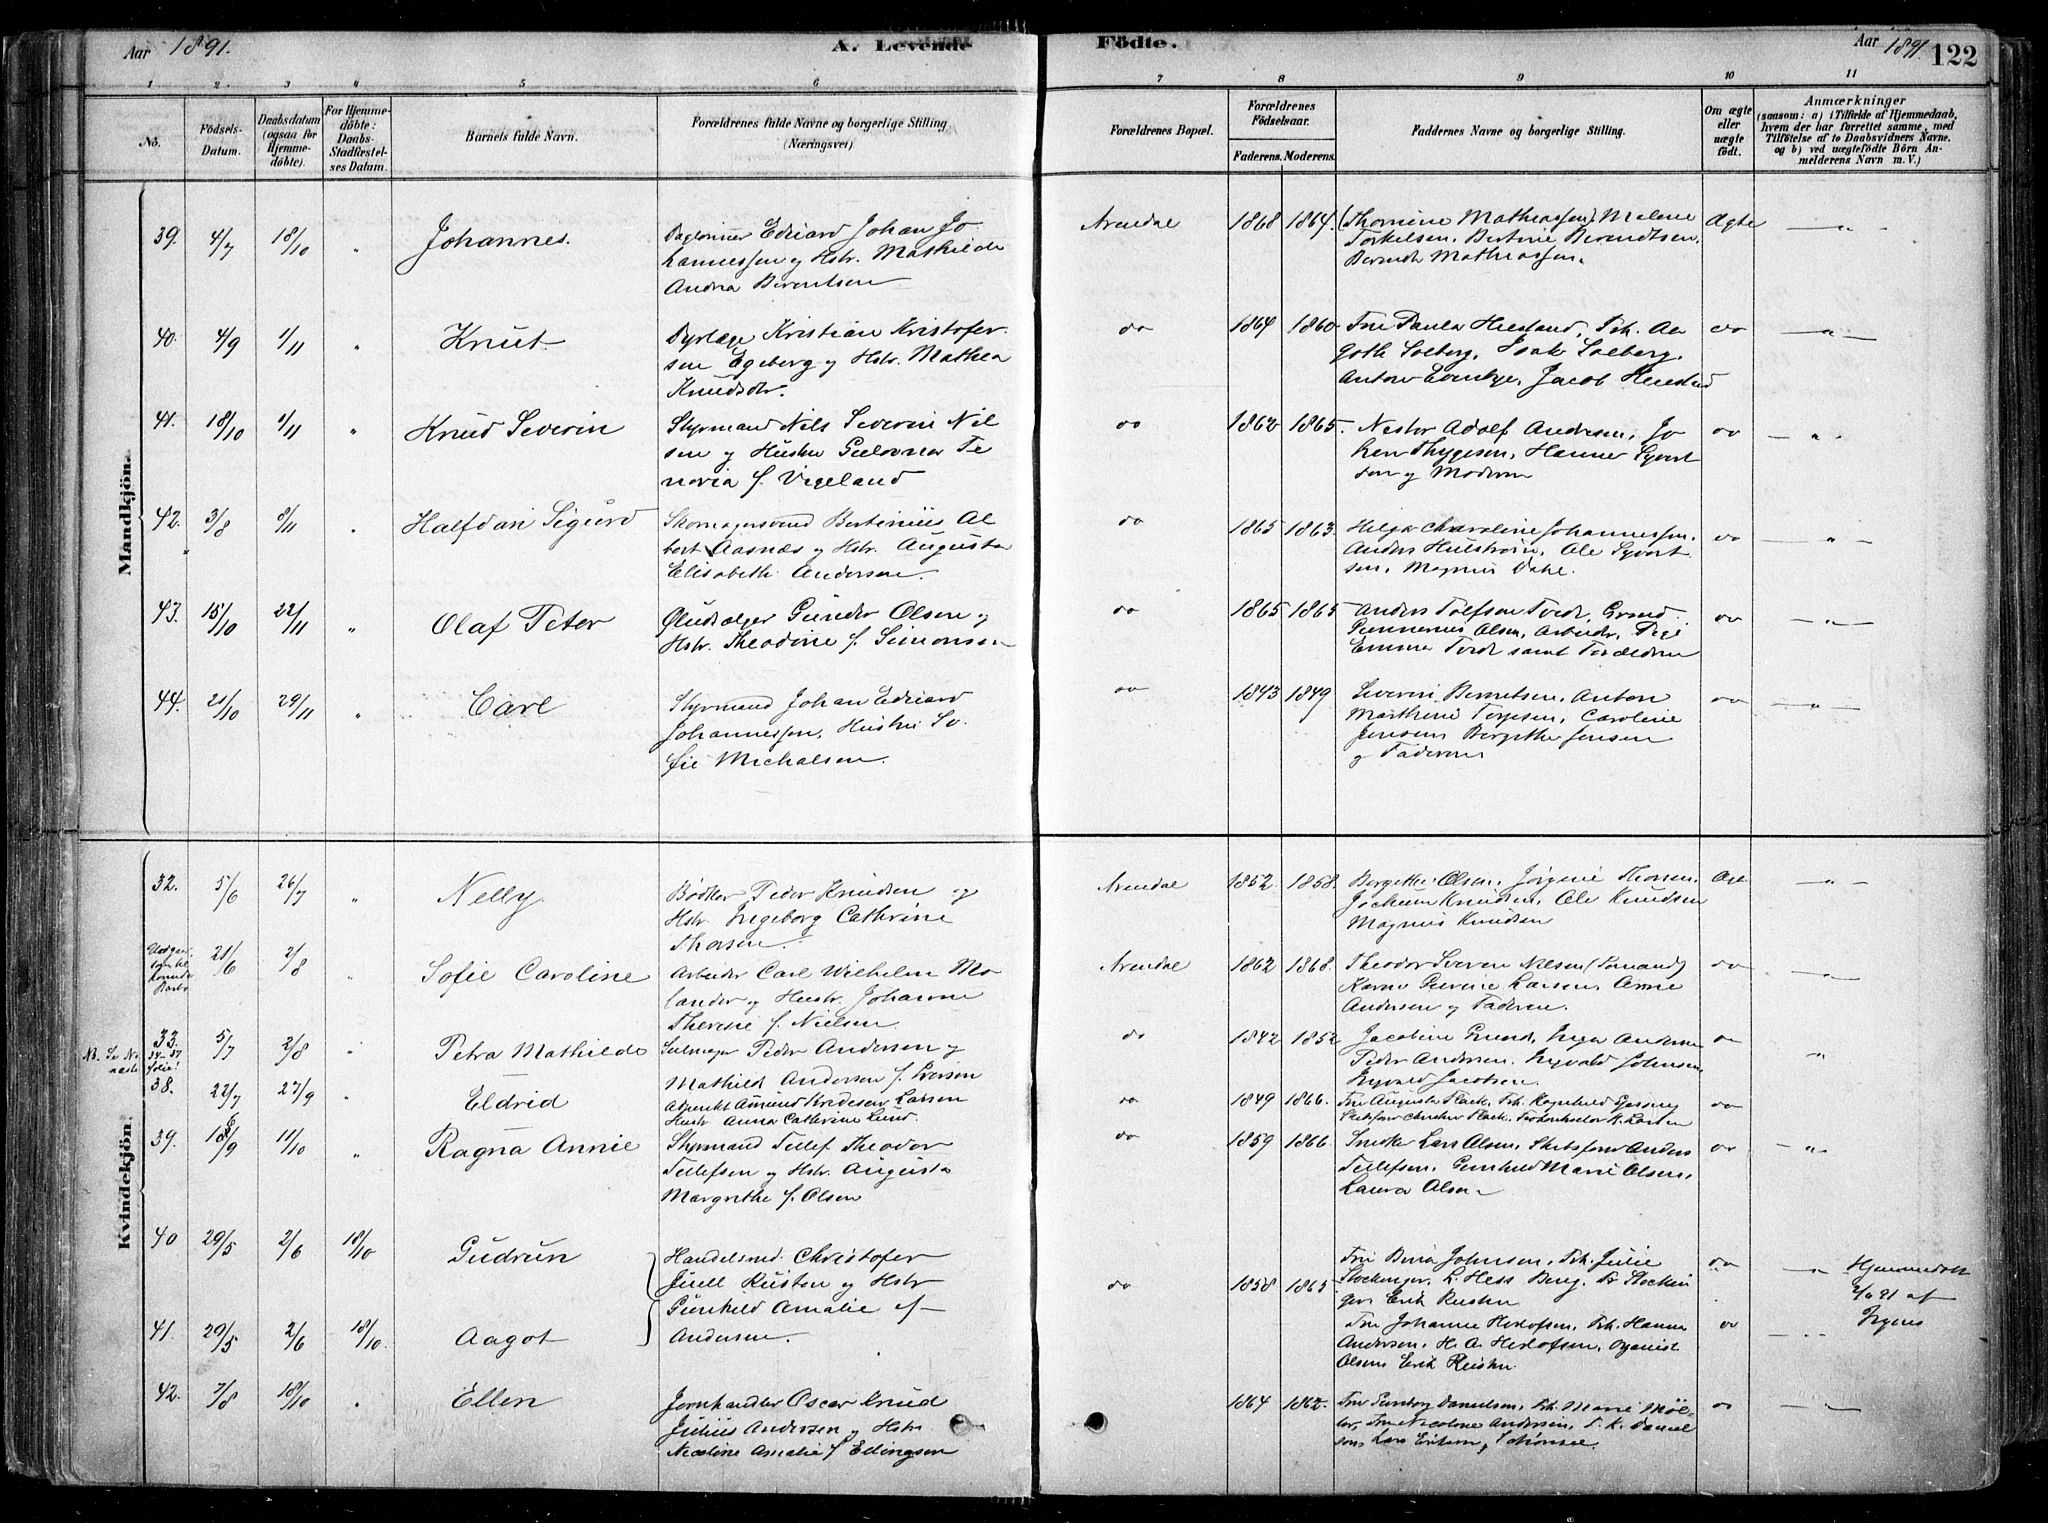 Aar 1891.
A. Levende
Födte.
Aar 1891.
122
1 2 3 4 5 6 7 8 9 10 11
No.
Födsels-
Datum.
Daabsdatum
(ogsaa for
Hjemme-
döbte).
For Hjemme-
döbte:
Daabs-
Stadfæstel-
ses Datum.
Barnets fulde Navn.
Forældrenes fulde Navne og borgerlige Stilling
(Næringsvei)
Forældrenes Bopæl.
Forældrenes
Födselsaar.
Faderens. Moderens.
Faddernes Navne og borgerlige Stilling.
Om ægte
eller
uægte
födt.
Anmærkninger
(saasom: a) i Tilfælde af Hjemmedaab,
hvem der har forrettet samme, med
Tilföielse af to Daabsvidners Navne,
og b) ved uægtefödte Börn An-
melderens Navn m. V.)
Mandkjön.
39. 4/7 18/10 " Johannes.
Daglönner Edvard Johan Jo
hannessen og Hstr. Mathilde
Andrea Berentsen
Arendal 1868 1864.
(Thomine Mathiassen) Malene
Torkelsen, Bertine Berndtsen,
Berendt Mathiassen.
Ægte — " —
40. 4/9 1/11 " Knut.
Dyrlæge Kristian Kristofer
sen Egeberg og Hstr. Mathea
Knudsdtr.
do 1864 1860.
Fru Paula Heiestad, Frk. Aa
goth Solberg, Isak Solberg,
Anton Evenbye, Jacob Heiestad
do — " —
41. 18/10 1/11 " Knud Severin
Styrmand Nils Severin Nil
sen og Hustru Gulovna Te
noria f. Vigeland
do 1862 1865.
Nestor Adolf Andersen, Jo
hen Thygesen, Hanner Syvert
sen og Moderen
do — " —
42. 3/8 8/11 " Halfdan Sigurd
Skomagersvend Bertinius Al
bert Aasnæs og Hstr. Augusta
Elisabeth Andersen.
do 1865 1863.
Helga Charoline Johannessen,
Anders Hulstrøm, Ole Syvert
sen, Magnus Dahl.
do — " —
43. 15/10 22/11 " Olaf Peter
Øludsælger Gunder Olsen og
Hstr. Theodine f. Simonsen
do 1865 1865
Anders Tolfsen Tvedt, Gusud
Gunnerius Olsen, Arbeider, Pige
Emma Tvedt samt Forældrene
do — " —
44. 21/10 29/11 " Carl
Styrmand Johan Edvard
Johannessen, Hustru So
fie Michalsen.
do 1843 1849
Severin Berntsen, Anton
Marthin Torjesen, Caroline
Jensen Bergithe Jensen
og Faderen
do — " —
Kvindekjön.
32. 5/6 26/7 " Nelly
Bödker Peder Knudsen og
Hstr. Ingeborg Cathrine
Thorsen.
Arendal 1852. 1858.
Bergethe Olsen, Jörgine Thorsen,
Jochum Knudsen, Ole Knudsen
Magnus Knudsen
Ægte — " —
21/6 2/8 " Sofie Caroline
Arbeider Carl Wilhelm Mo
lander og Hustr. Johanne
Therese f. Nielsen.
Arendal 1862 1868.
Theodor Severin Nilsen (Sømand)
Karen Severine Larsen, Anne
Andersen og Faderen.
do — " —
33. 5/7 2/8 " Petra Mathilde
34–37
Seilmager Peder Andersen og
Mathilde Andersen f. Iversen
do 1842 1852
Jacobine Grund, Inga Andersen
Peder Andersen, Ingvald Johnsen,
Ingvald Jacobsen.
do "
38. 22/7 27/9 " Eldrid
Hustr. Anna Cathrine Lund.
do 1849 1866.
do
39. 18/9 11/10 " Ragna Annie
Styrmand Tellef Theodor
Tellefsen og Hstr. Augusta
Margrethe f. Olsen
do 1859 1866
Snedker Lars Olsen, Skibsförer Anders
Tellefsen, Gunhild Marie Olsen,
Laura Olsen
do — " —
40 29/5 2/6 18/10 Gudrun
Handelsmd. Christofer
Juell Rusten og Hstr
Gunhild Amalie f.
Andersen.
do 1858 1865
Fru Berta Johnsen, Frk. Julie
Stockinger, L. Hess Berg, B. Stockin
ger, Erik Rusten
do — " Hjemmedøbt
2/6 91 af
41. 29/5 2/6 18/10 Aagot
Fru Johanne Herlofsen, Frk. Hanna
Andersen, H. A. Herlofsen, Organist
Olsen, Erik Rusten.
do — " —
42. 7/8 18/10 " Ellen
Jernhandler Oscar Knud
Julius Andersen og Hstr
Nicoline Amalie f Ellingsen
1864 1862.
Danielsen, Frk. Marie Möl
ler, Fru Nicoline Andersen, K. Daniel
sen, Lars Eriksen,
do